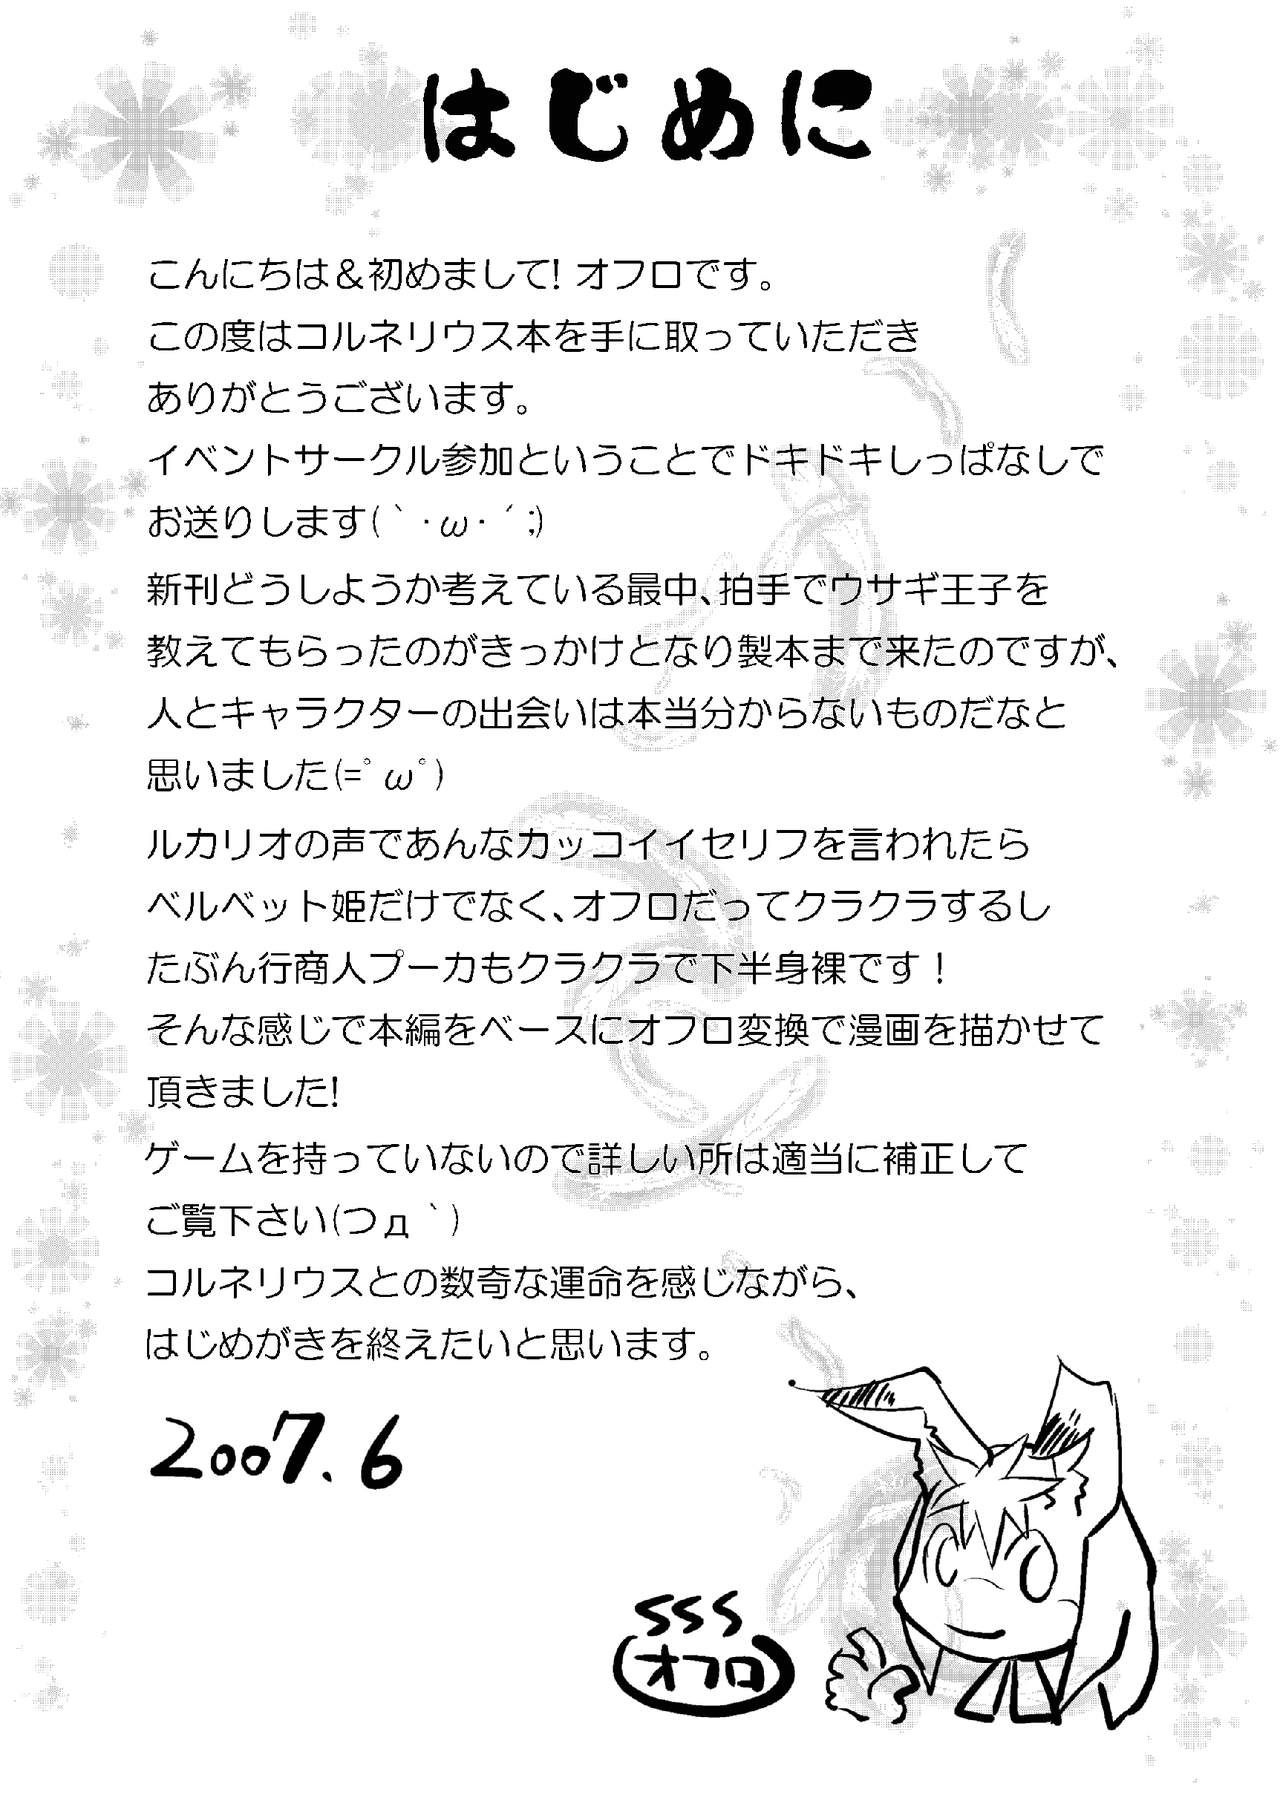 はじめに
こんにちは＆初めまして! オフロです。
この度はコルネリウス本を手に取っていただき
ありがとうございます。
イベントサークル参加ということでドキドキしっぱなしで
お送りします(｀・ω・´;)
新刊どうしようか考えている最中、拍手でウサギ王子を
教えてもらったのがきっかけとなり製本まで来たのですが、
人とキャラクターの出会いは本当分からないものだなと
思いました(=ﾟωﾟ)
ルカリオの声であんなカッコイイセリフを言われたら
ベルベット姫だけでなく、オフロだってクラクラするし
たぶん行商人プーカもクラクラで下半身裸です！
そんな感じで本編をベースにオフロ変換で漫画を描かせて
頂きました!
ゲームを持っていないので詳しい所は適当に補正して
ご覧下さい(つд｀)
コルネリウスとの数奇な運命を感じながら、
はじめがきを終えたいと思います。
2007.6
SSS
オフロ